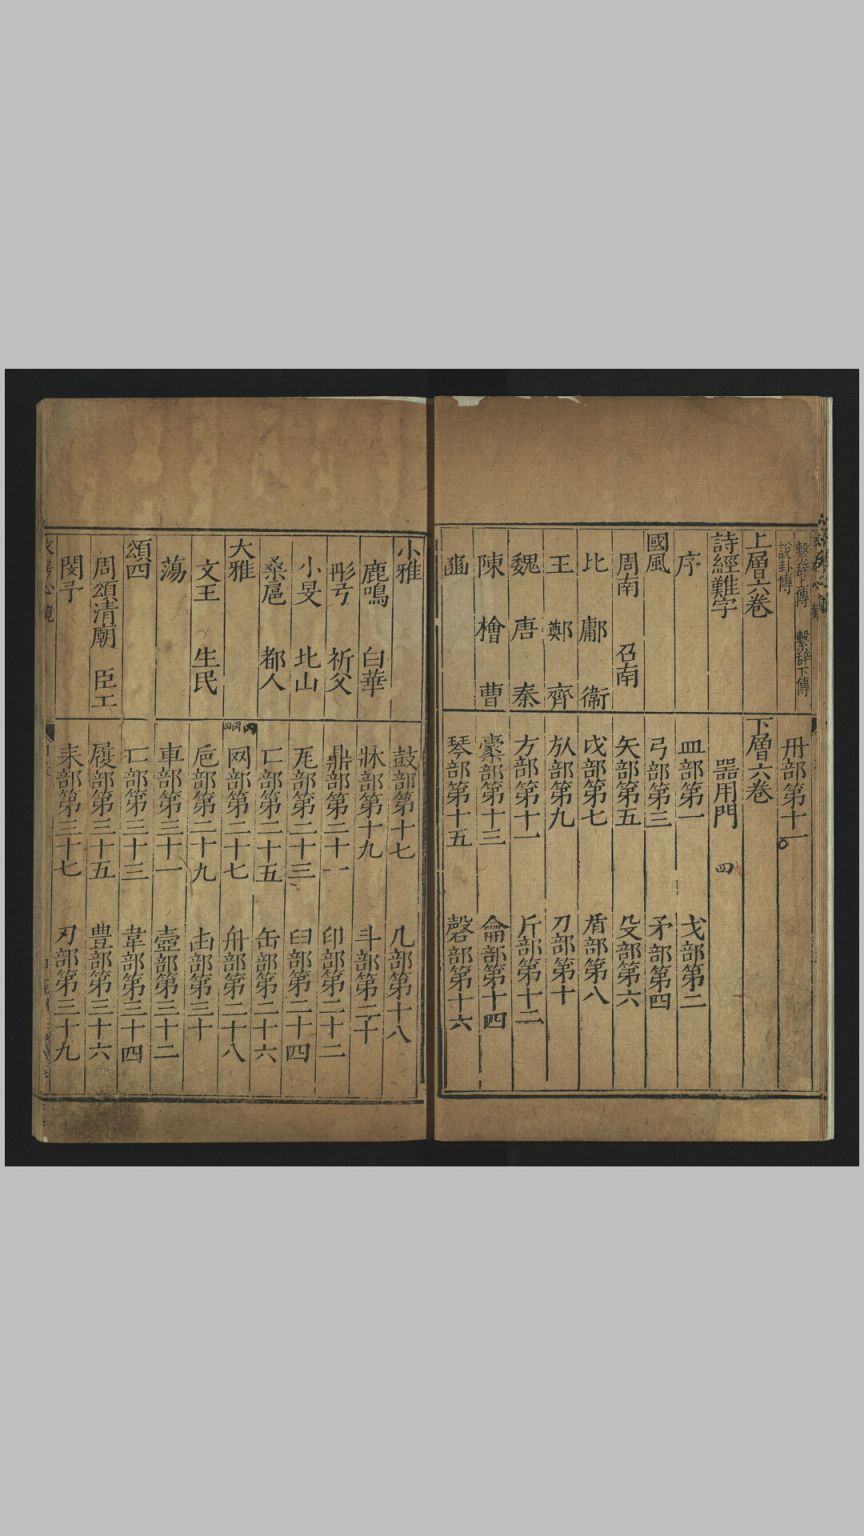 繫辭上傳　繫辭下傳
說卦傳
上層六卷
詩經難字
國風
序
周南　召南
比　鄘　衞
王　鄭　齊
魏　唐　秦
陳　檜　曹
豳
冊部第十一
下層六卷
器用門　四
皿部第一　戈部第二
弓部第三　矛部第四
矢部第五　殳部第六
戊部第七　盾部第八
㫃部第九　刀部第十
方部第十一　斤部第十二
橐部第十三　龠部第十四
琴部第十五　磬部第十六
小雅
鹿鳴　白華
彤弓　祈父
小旻　北山
桑扈　都人
大雅
文王　生民
蕩
頌四
周頌清廟　臣工
閔予
鼓部第十七　几部第十八
牀部第十九　斗部第二十
鼎部第二十一　印部第二十二
瓦部第二十三　臼部第二十四
匚部第二十五　缶部第二十六
网部第二十七　舟部第二十八
巵部第二十九　甴部第三十
車部第三十一　壺部第三十二
匸部第三十三　韋部第三十四
履部第三十五　豊部第三十六
耒部第三十七　刃部第三十九